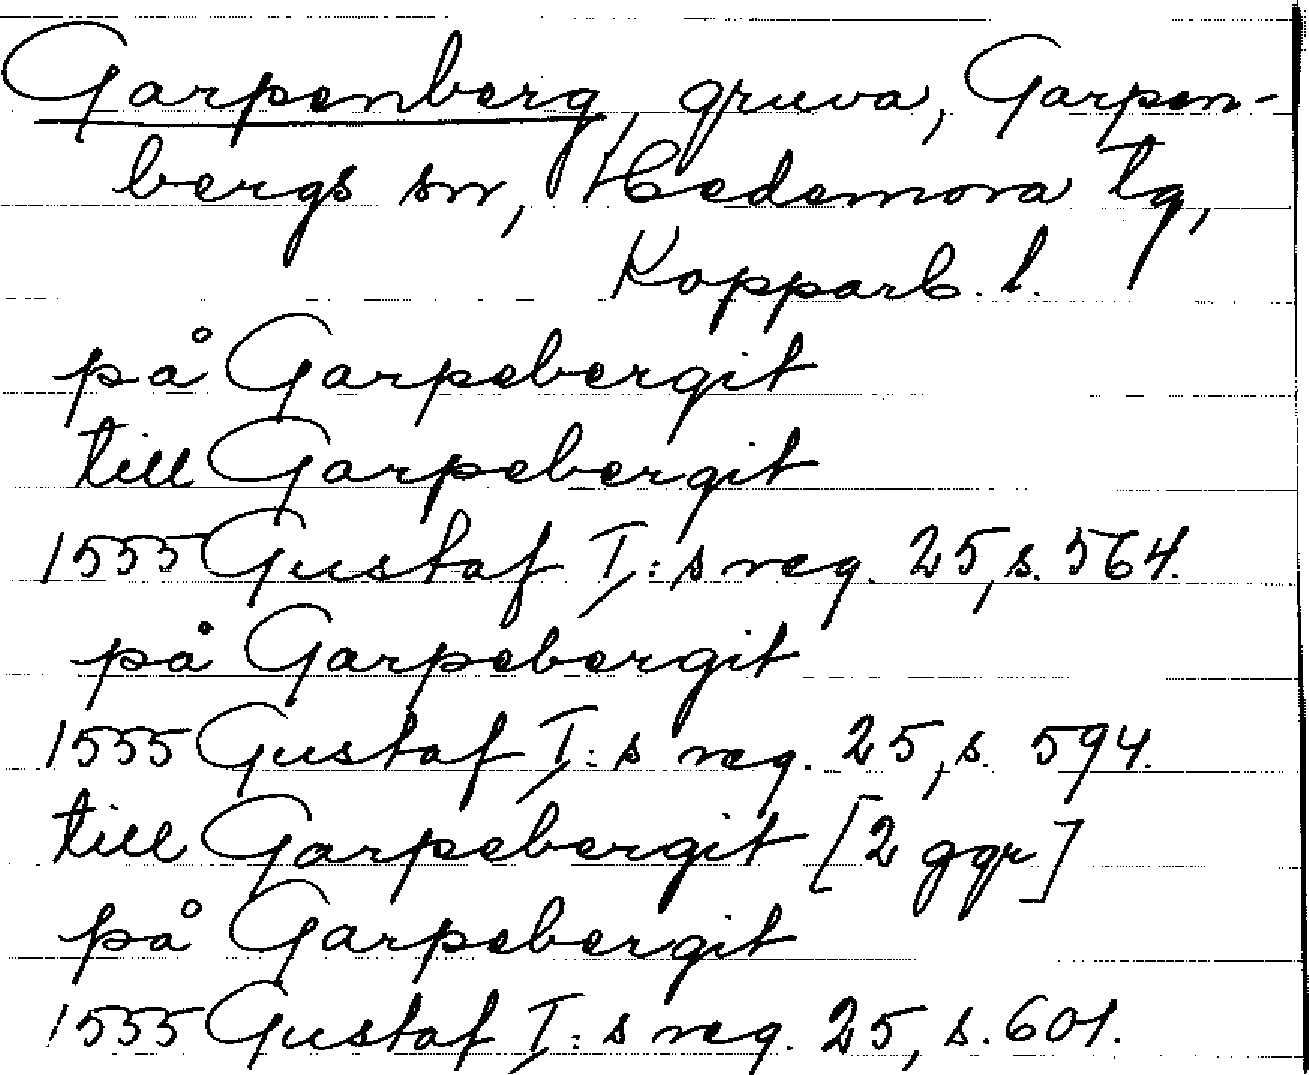 Garpenberg, gruva, Garpen-
bergs sn, Hedemora tg,
Kopparb. l.
på Garpebergit
till Garpebergit
1555 Gustaf I:s reg. 25, s. 564.
på Garpebergit
1555 Gustaf I:s reg. 25, s. 594.
till Garpebergit [2 ggr]
på Garpebergit
1555 Gustaf I:s reg. 25, s. 601.